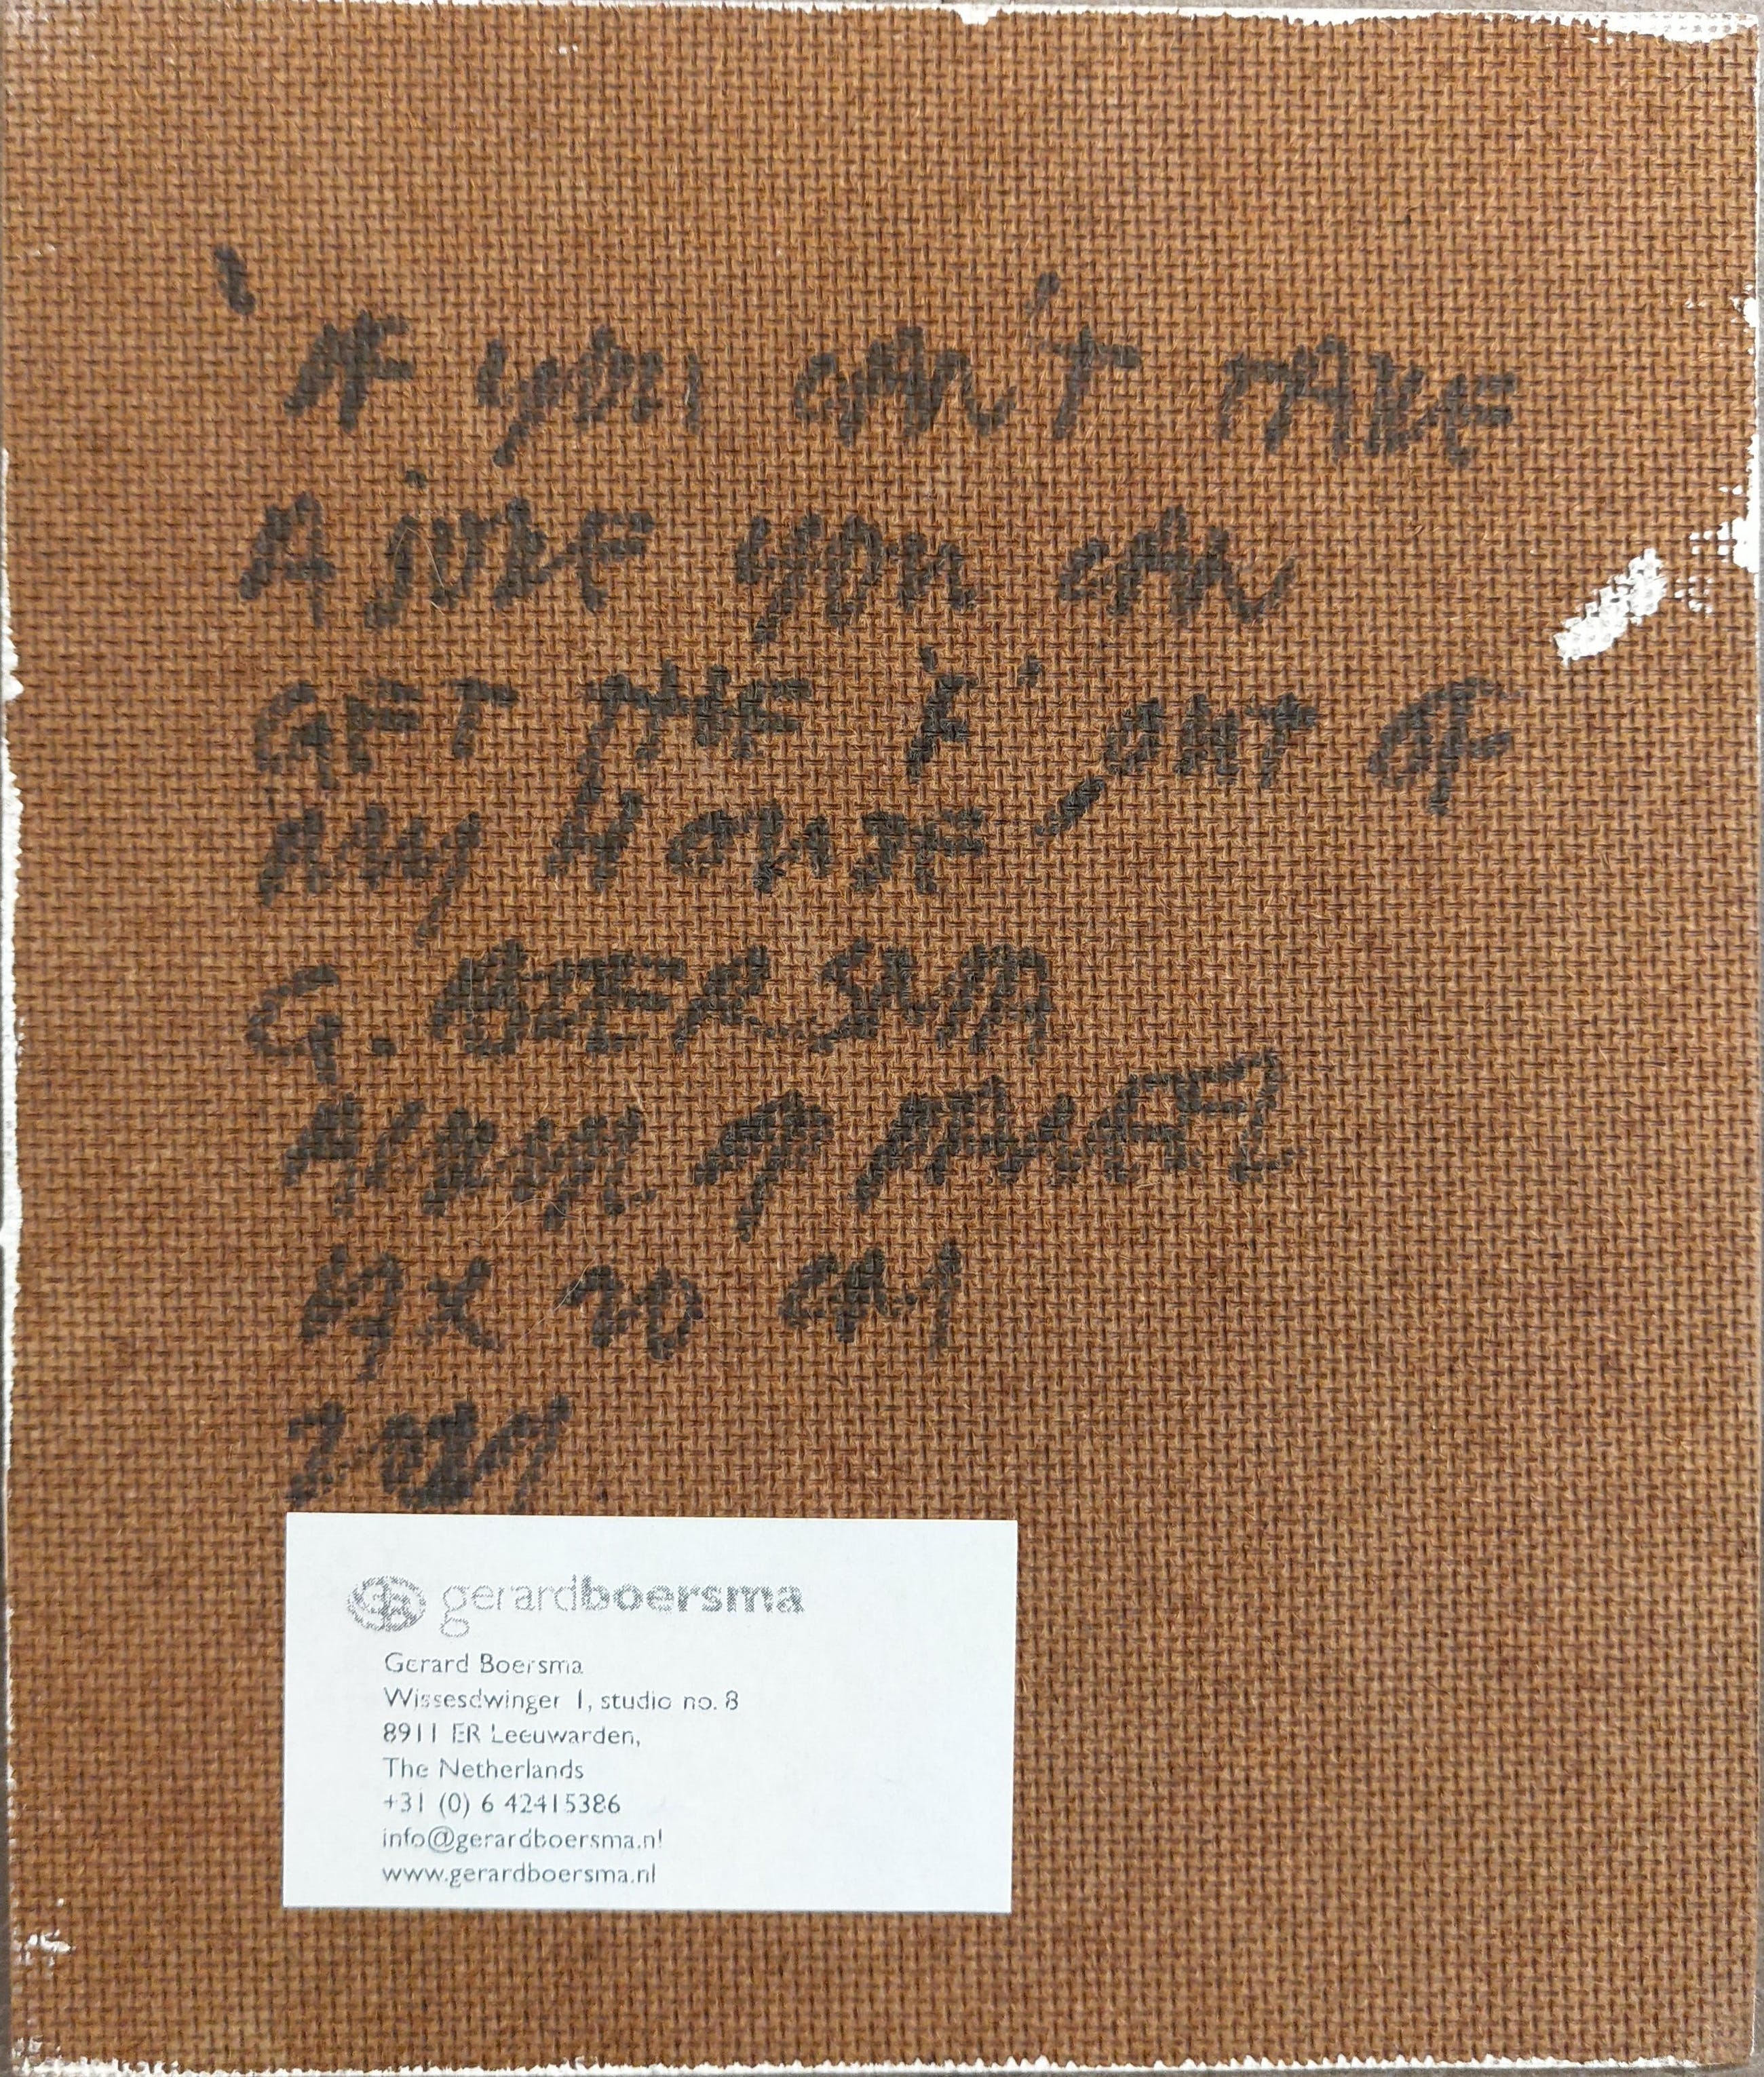 'IF you can't TAKE
A joke you can
GET THE 'F' OUT OF
my House'
G. BOERSMA
20 cm
GB gerardboersma
Gerard Boersma
Wissesdwinger 1, studio no. 8
8911 ER Leeuwarden,
The Netherlands
+31 (0) 6 42415386
info@gerardboersma.nl
www.gerardboersma.nl